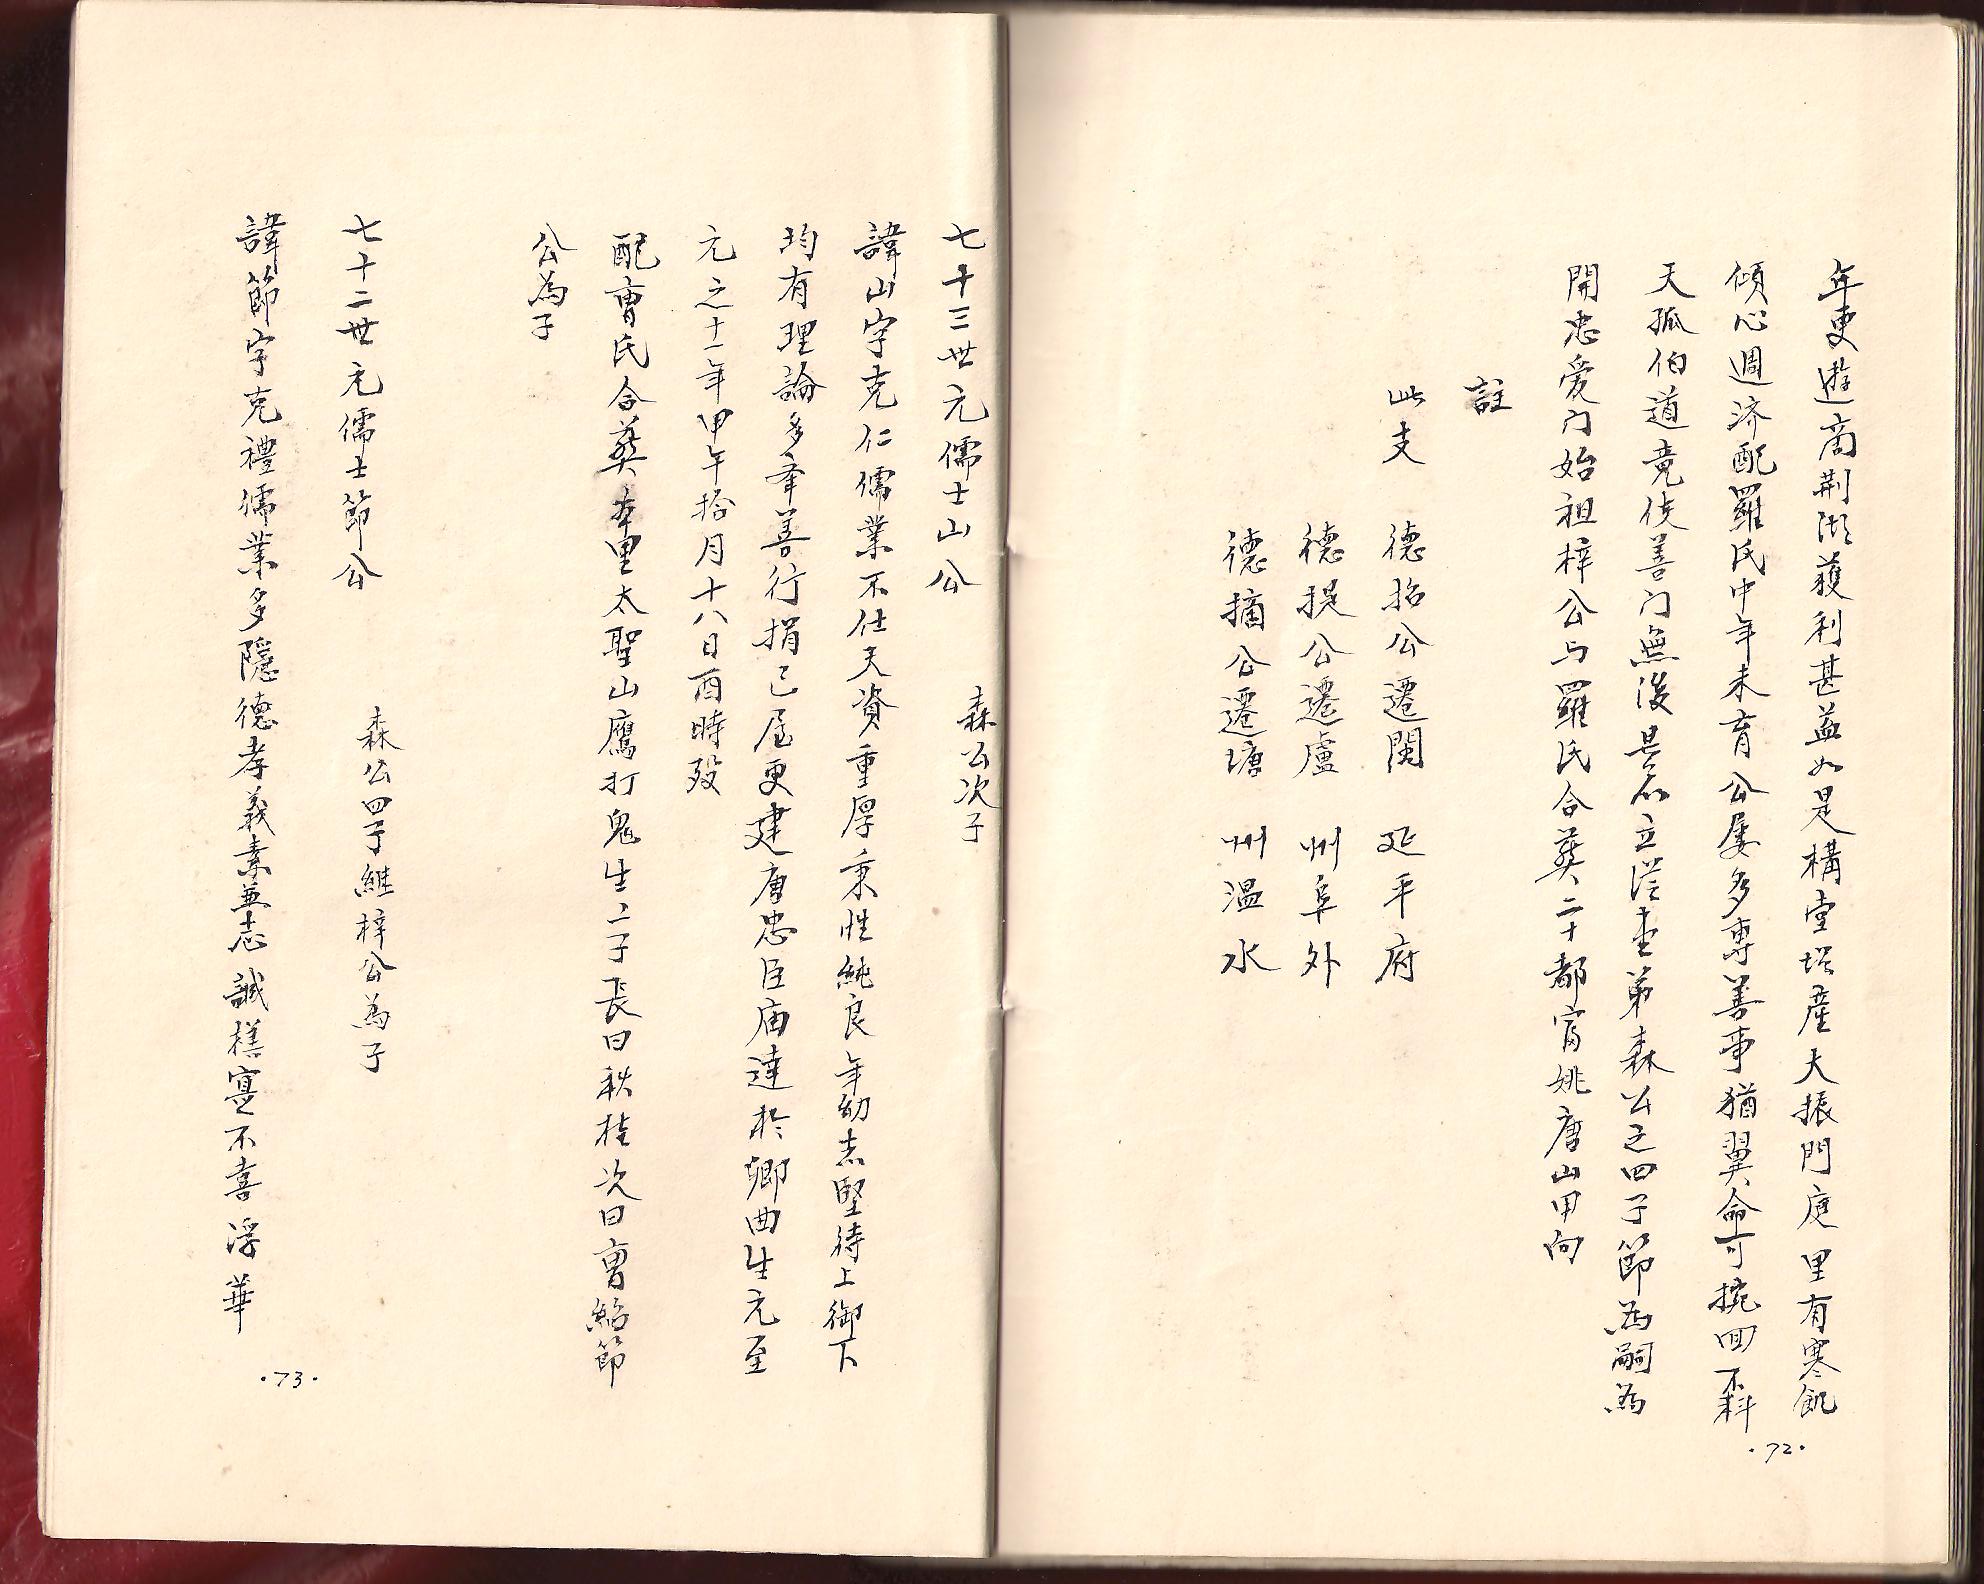 年更遊商荆湖獲利甚益如是構堂塋產大振門庭里有寒飢
傾心週济配羅氏中年未育公屡多專善事猶翼命可挽回不料
天孤伯道竟使善门無後是以立從堂弟森公之四子節為嗣為
開忠爱门始祖梓公与羅氏合葬二十都宵姚唐山甲向
註
此支 德招公遷閩 延平府
德提公遷盧 州阜外
德摘公遷塘 州温水
·72·
七十三世元儒士山公 森公次子
諱山字克仁儒業不仕天資重厚秉性純良年幼志堅待上御下
均有理論多年善行捐己屋更建唐忠臣庙達於鄉曲生元至
元之十一年甲午拾月十八日酉時殁
配曹氏合葬本里太聖山鷹打鬼生二子長曰秋桂次曰曹給節
公為子
七十二世元儒士節公 森公四子継梓公為子
諱節字克禮儒業多隱德孝義素並志誠樸寔不喜浮華
·73·